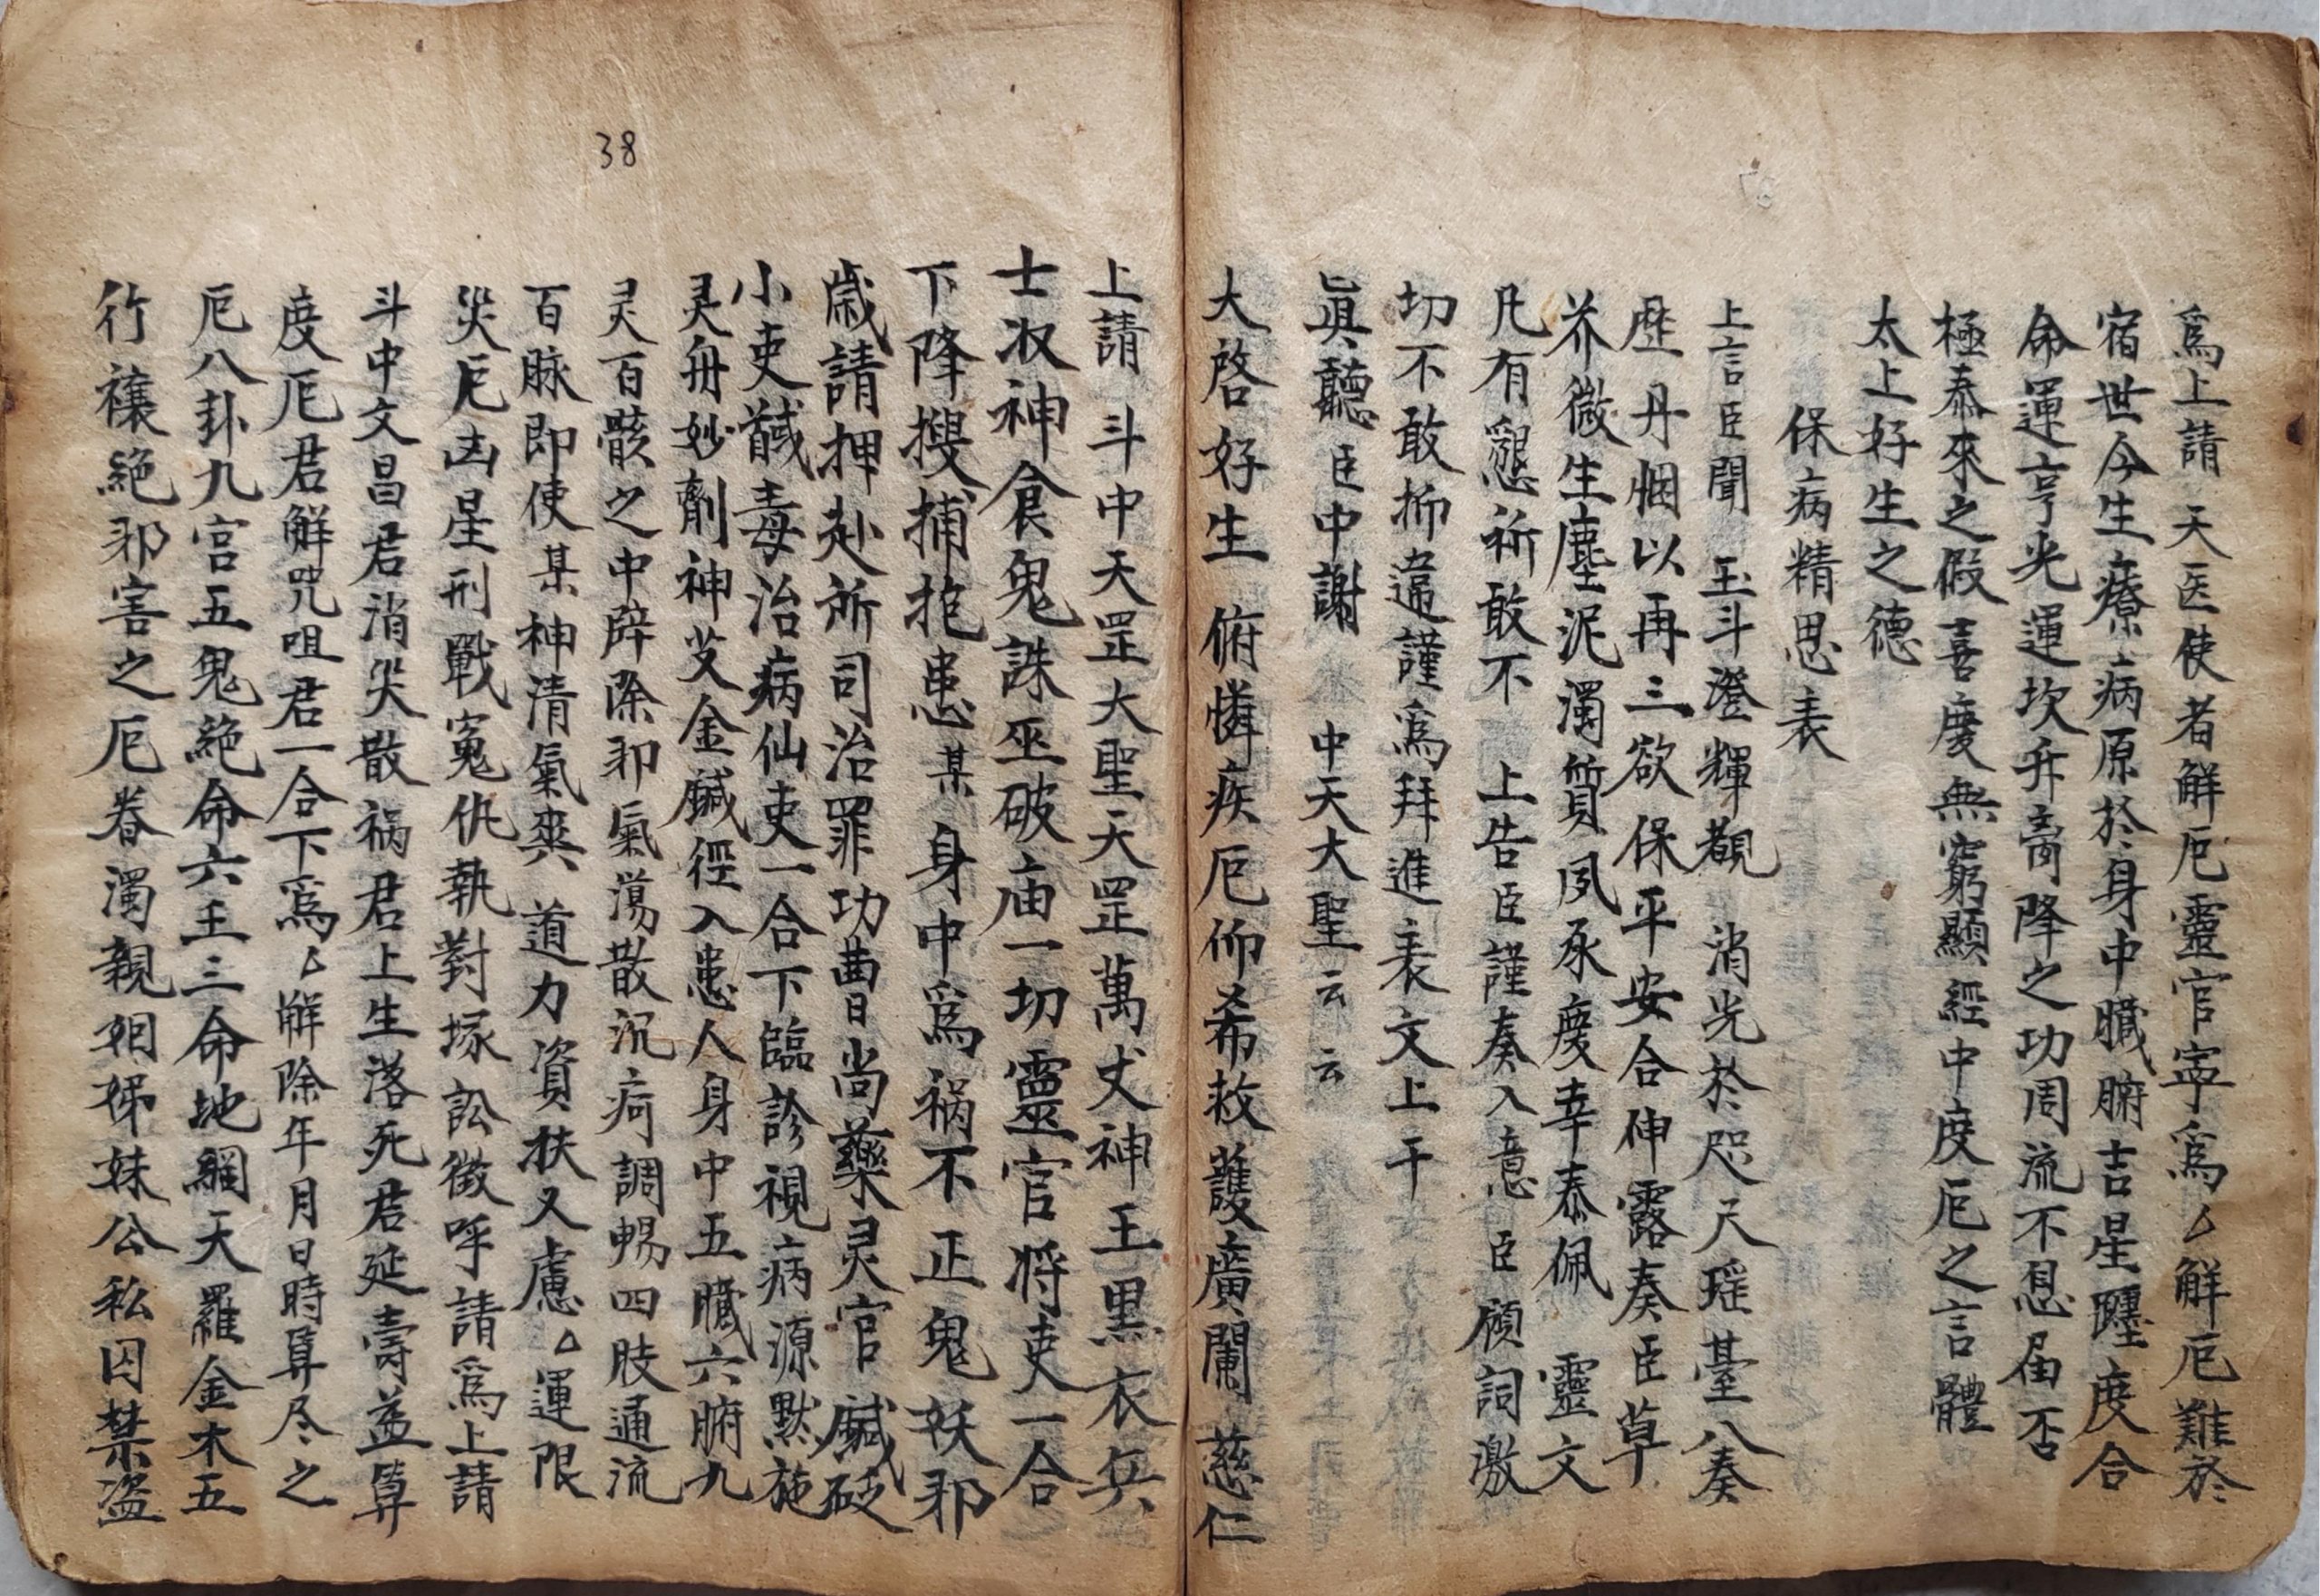 爲上請 天医使者解厄靈官寜爲厶解厄難於
宿世今生療病原於身中臟腑吉星躔度合
命運亨光運坎升离降之功周流不息届否
極泰來之假喜慶無窮顯經中度厄之言體
太上好生之德
保病精思表
上言臣聞 玉斗澄輝覩 消光於咫尺瑶臺八奏
歴丹悃以再三欲保平安合伸露奏臣草
芥微生塵泥濁質夙承慶幸泰佩 靈文
凡有懇祈敢不 上告臣謹奏入意臣 頋詞激
切不敢抑違謹爲拜進表文上干
眞聽臣中謝 中天大聖云云
大啓好生 俯憐疾厄仰希救護廣闡慈仁
38
上請 斗中天罡大聖天罡萬丈神王黒衣兵
士收神食鬼誅巫破庙一切靈官将吏一合
下降搜捕拖患某身中爲禍不正鬼妖邪
歳請押赴所司治罪功曹尚藥灵官鍼砭
小吏馘毒治病仙吏一合下臨診視病源黙施
灵丹妙劑神艾金鍼徑入患人身中五臟六腑九
灵百骸之中辟除邪氣蕩散沉疴調暢四肢通流
百脉即使某神清氣爽 道力資扶又慮厶運限
灾厄凶星刑戰寃仇執對塚訟徵呼請爲上請
斗中文昌君消灾散禍君上生落死君延壽益算
度厄君解咒咀君一合下爲厶解除年月日時算尽之
厄八卦九宫五鬼絶命六壬三命地網天羅金木五
行禳絶邪害之厄眷濁親姻姊妹公私囚禁盗